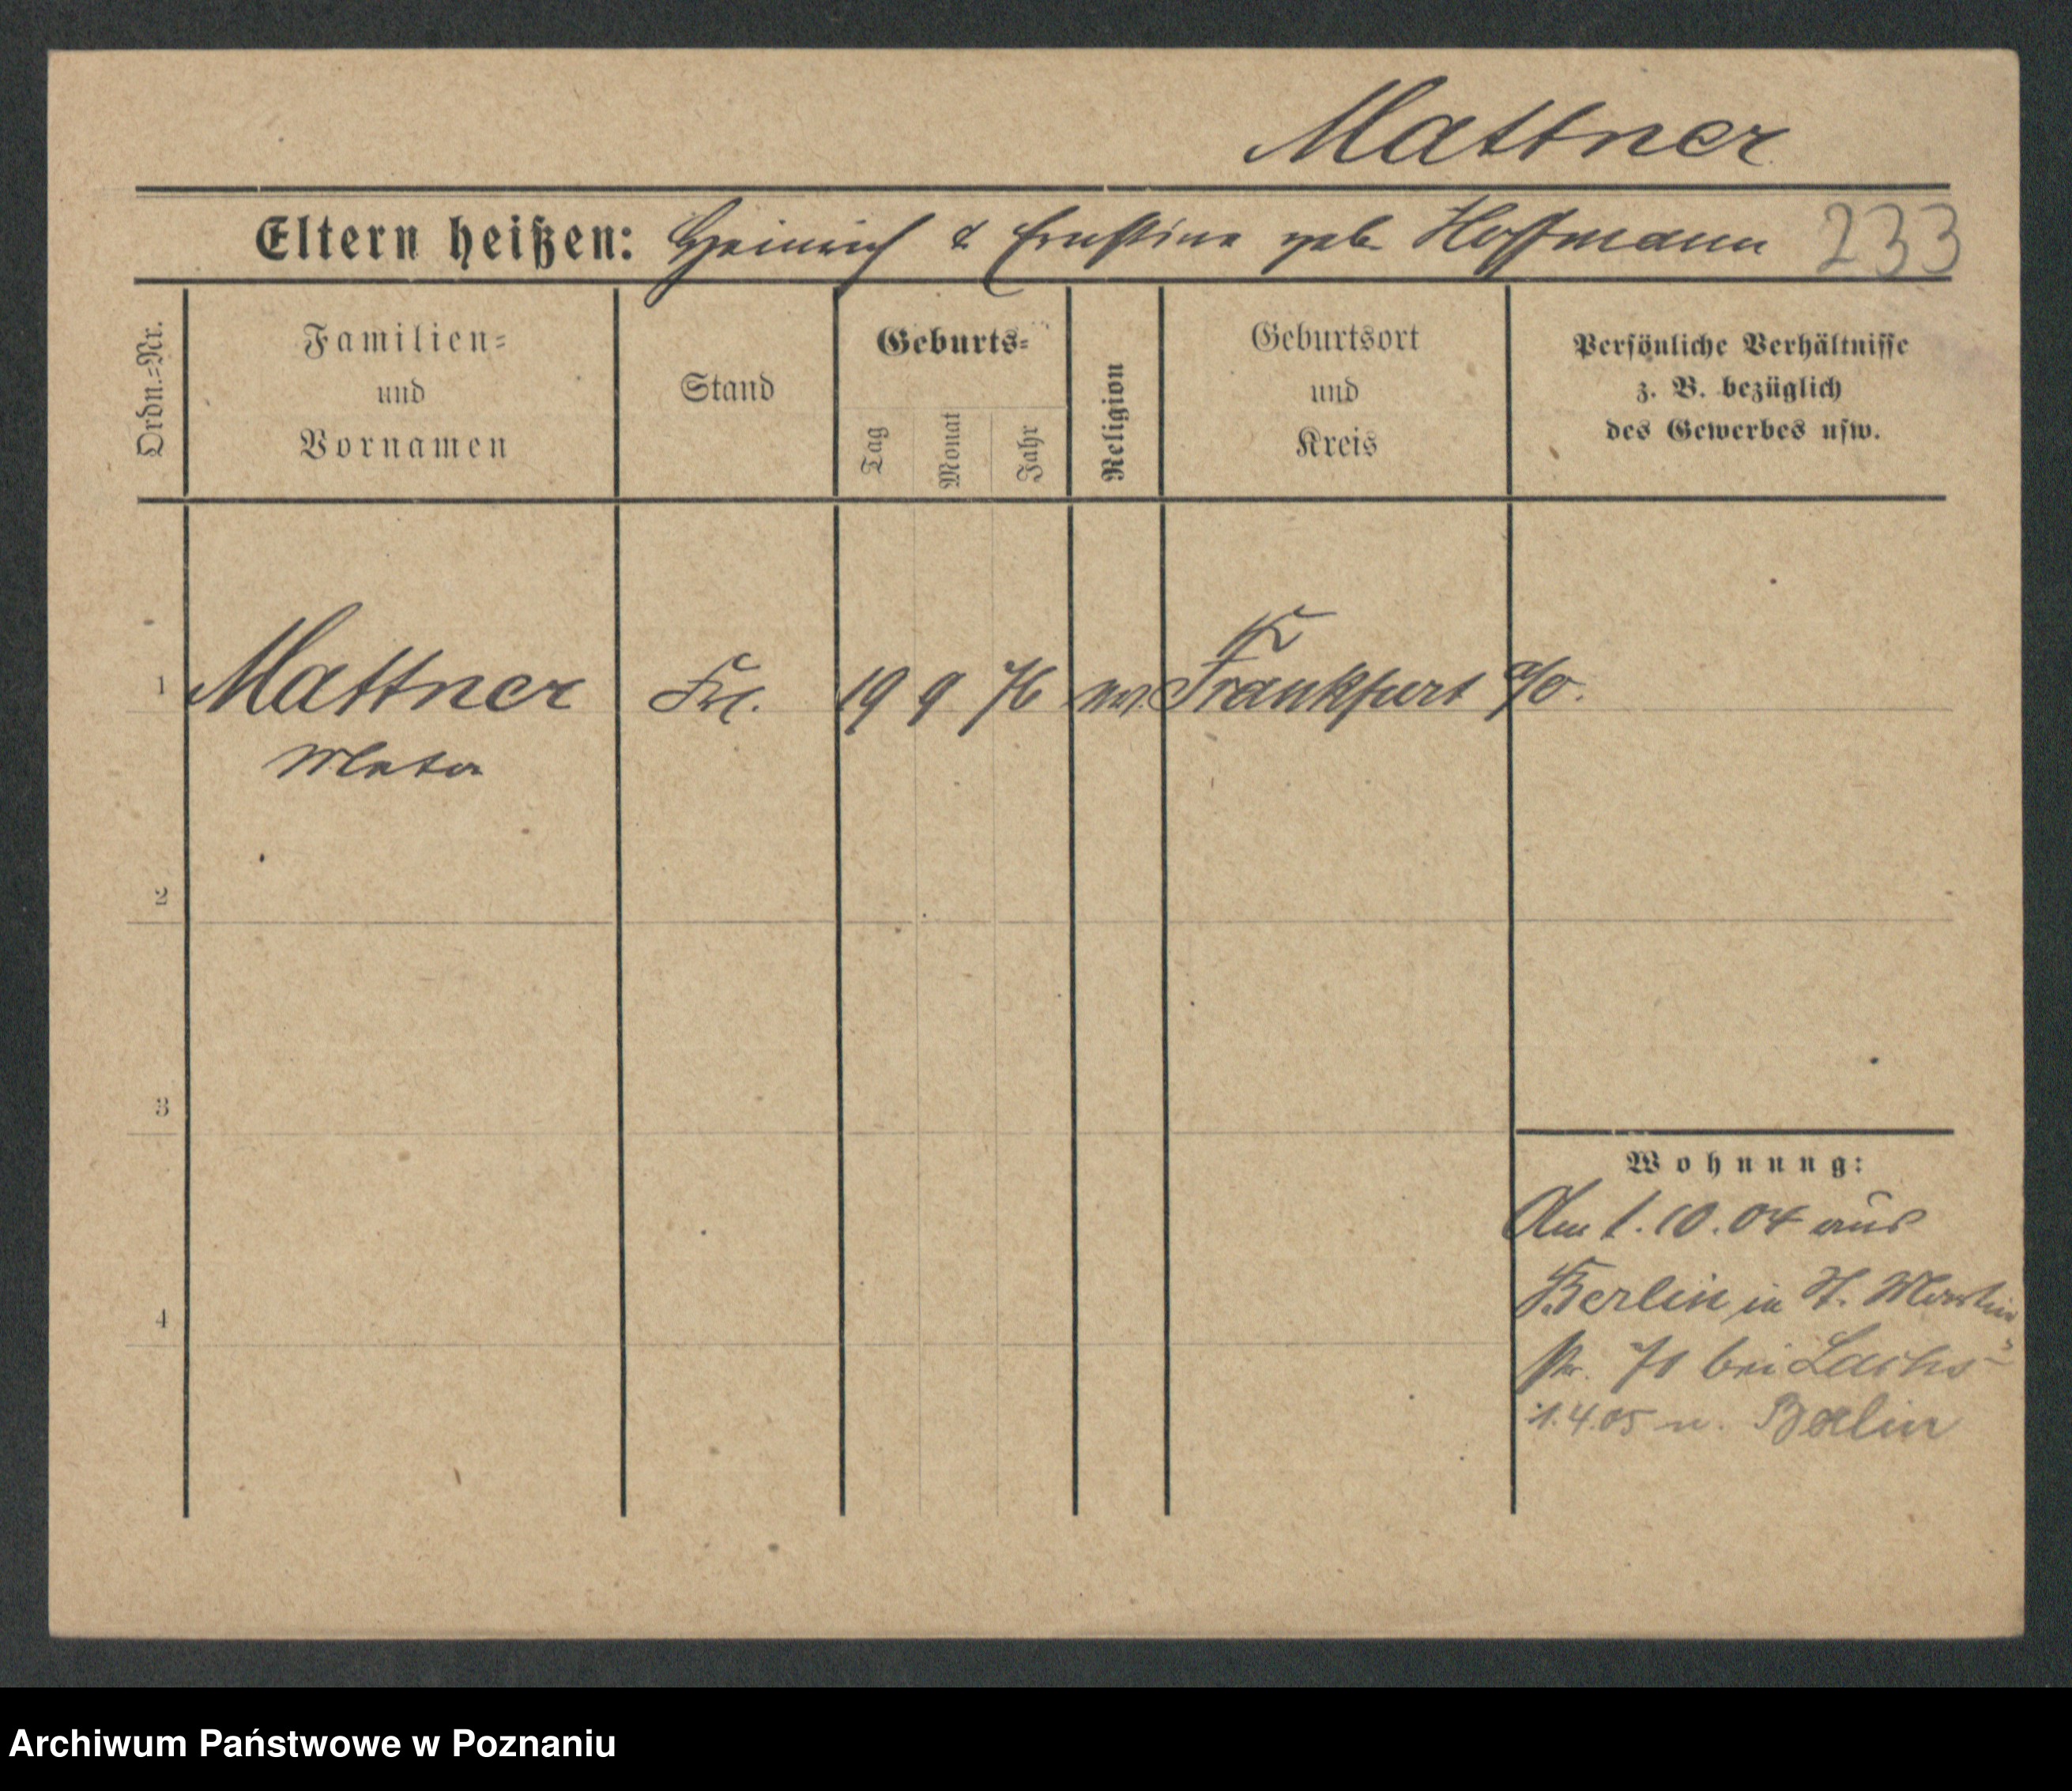 Mattner
Eltern heißen: Heinrich & Ernstine geb Hoffmann 233
Ordn.-Nr.
Familien-
und
Vornamen
Stand
Geburts-
Tag
Monat
Jahr
Religion
Geburtsort
und
Kreis
Persönliche Verhältnisse
z. B. bezüglich
des Gewerbes usw.
1 Mattner Frl. 19 9 76 Frankfurt a/O.
2
3
4
Wohnung:
Am 1.10.04 aus
Berlin in St. Martin-
str. 71 bei
1.4.05 n. Berlin
Archiwum Państwowe w Poznaniu